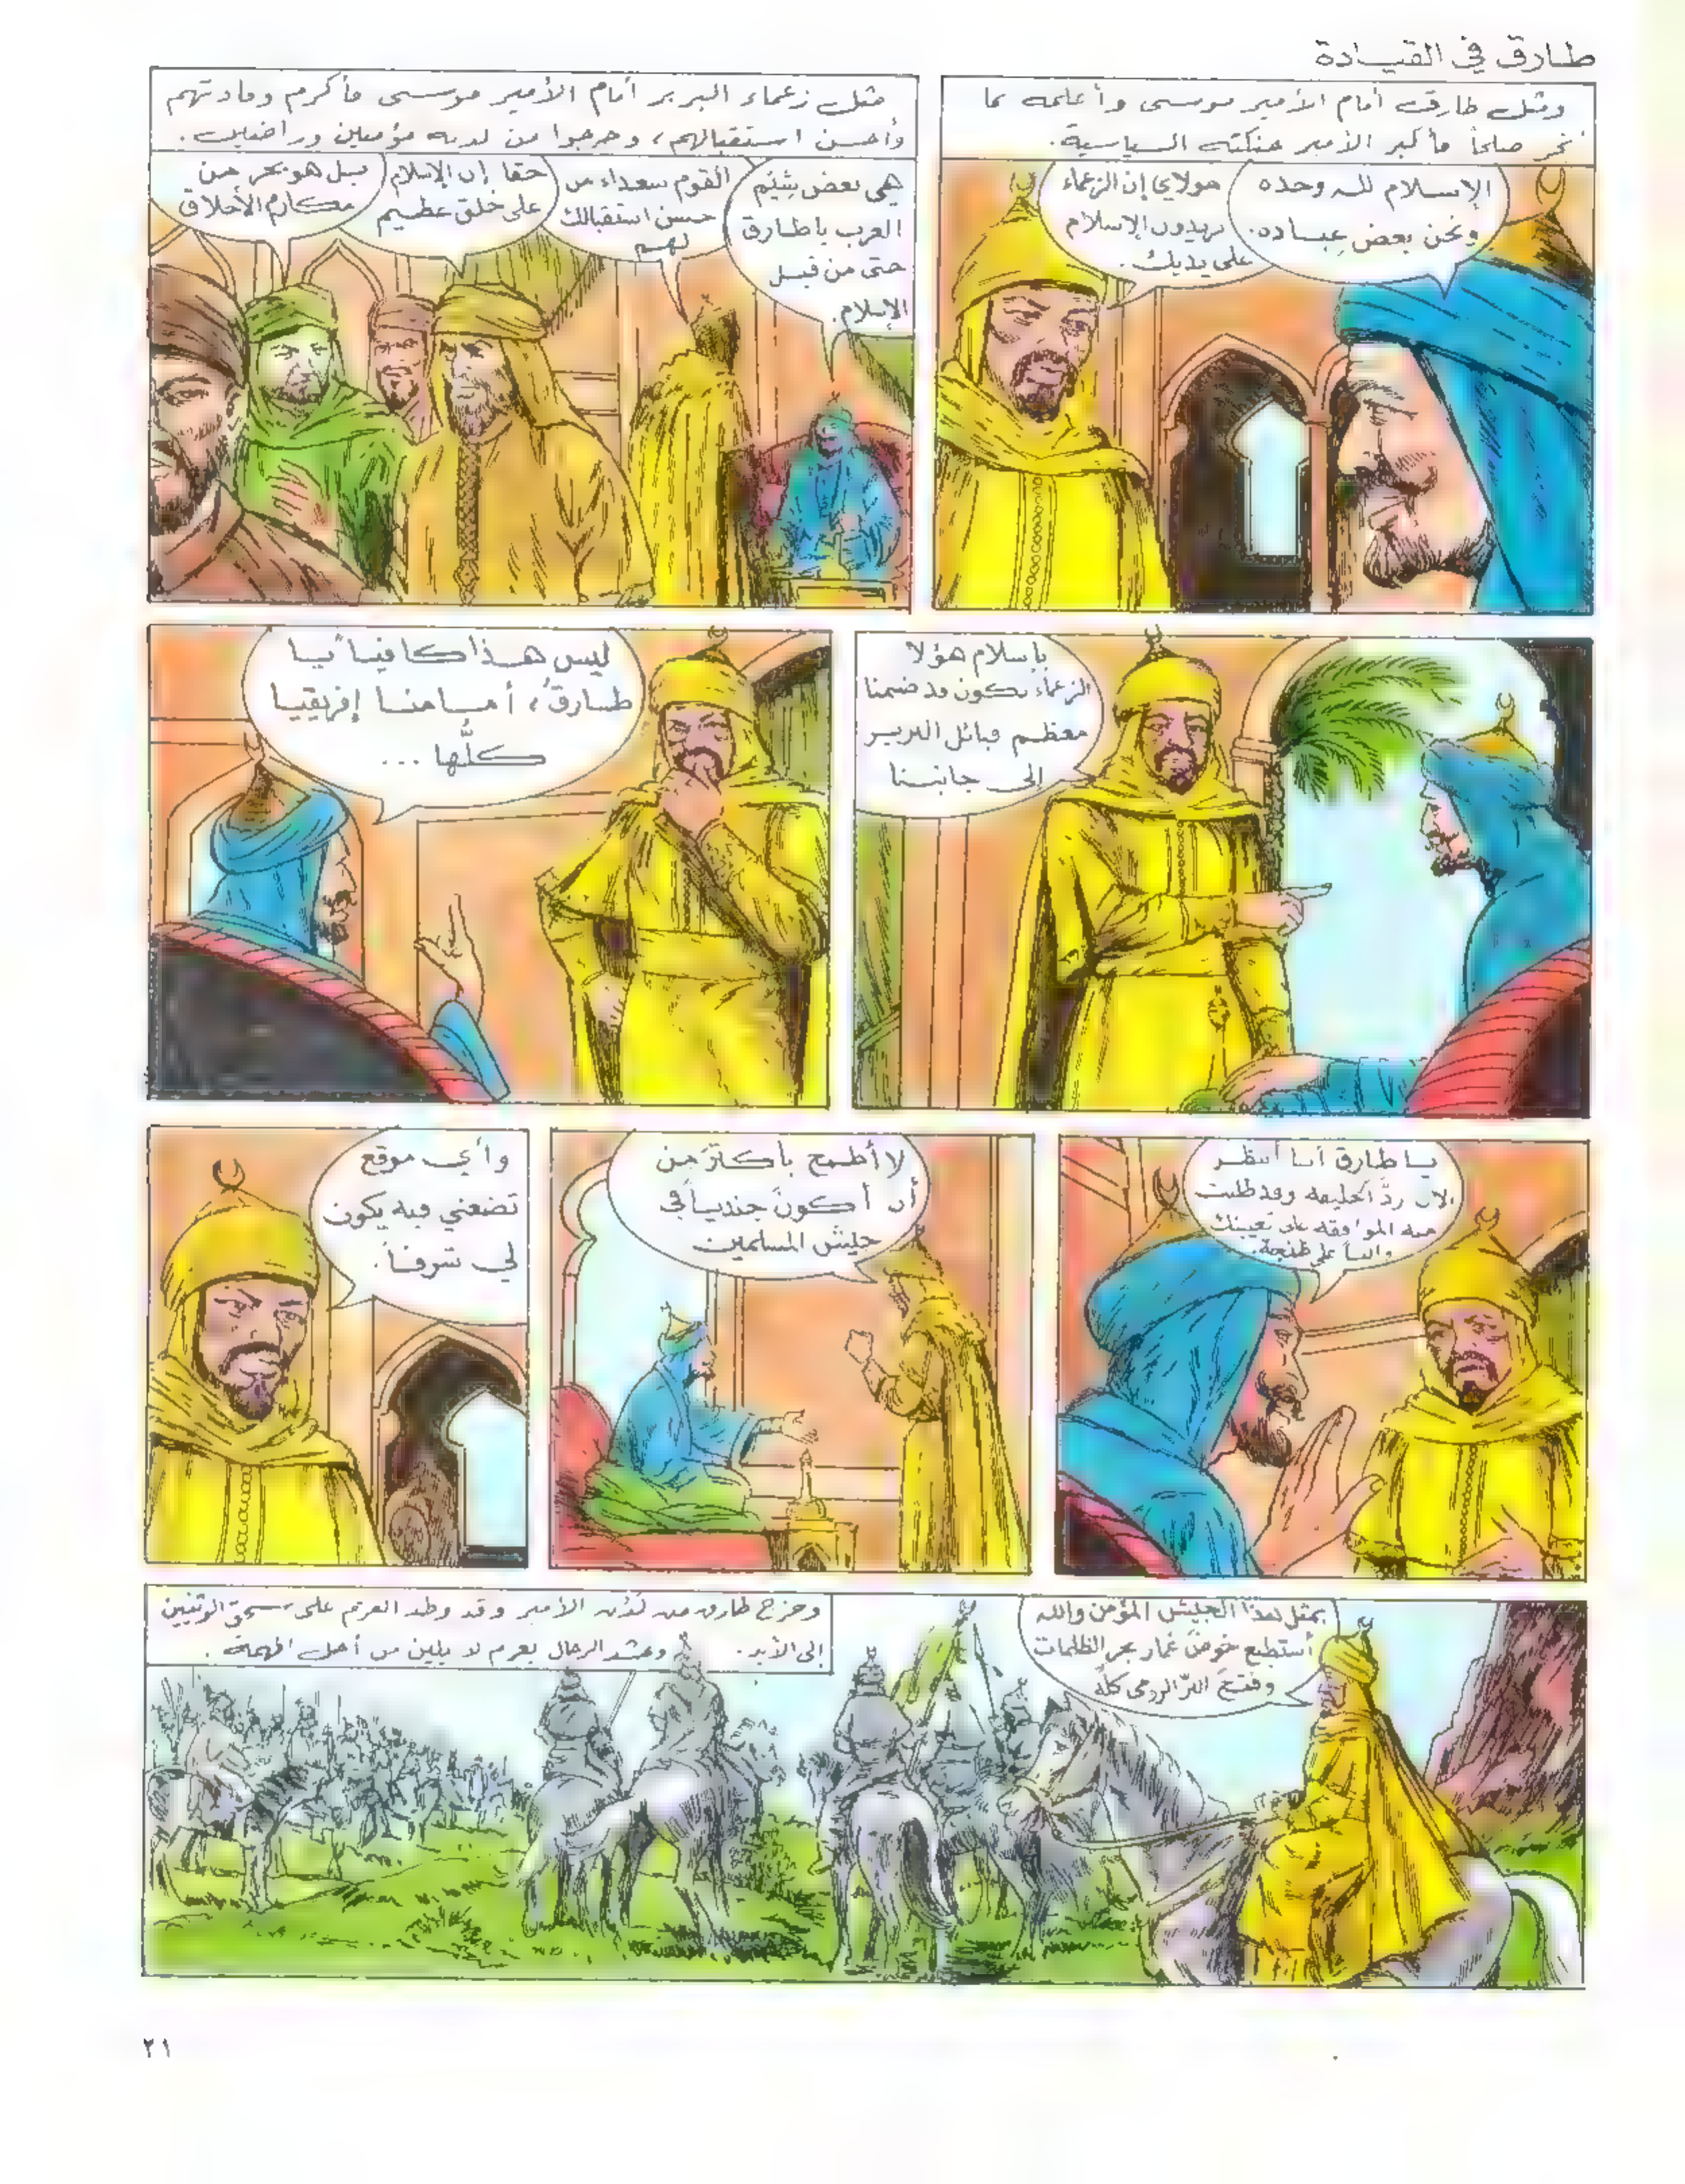 طارق في القيادة
ومثل طارق أمام الأمير موسى وأعلمه بما
تمّ صلحاً فأكبر الأمير حنكته السياسية.
الإسلام لله وحده
ونحن بعض عباده.
مولاي إن الزعماء
يريدون الإسلام
على يديك.
مثل زعماء البربر أمام الأمير موسى فأكرم وفادتهم
وأحسن استقبالهم، وخرجوا من لدنه مؤمنين وراضين.
هي بعض شِيَم
العرب يا طارق
حتى من قبل
الإسلام.
القوم سعداء من
حسن استقبالك
لهم
حقا إن الإسلام
على خلق عظيم
بل هو بحر من
مكارم الأخلاق
بإسلام هؤلا
الزعماء نكون قد ضممنا
معظم قبائل البربر
إلى جانبنا
ليس هذا كافياً يا
طارق، أمامنا إفريقيا
كلُّها ...
يا طارق أنا أنتظر
الآن ردَّ الخليفة وقد طلبت
منه الموافقة على تعيينك
والياً على طنجة.
لا أطمح بأكثرَ من
أن أكونَ جندياً في
جيش المسلمين
وأي موقع
تضعني فيه يكون
لي شرفاً.
بمثل هذا الجيش المؤمن والله
أستطيع خوضَ غمار بحر الظلمات
وفتحَ البرّ الرومي كلّه
وخرج طارق من لدن الأمير وقد وطد العزم على سحق الوثنيين
إلى الأبد. وحشد الرجال بعزم لا يلين من أجل المهمة.
٢١